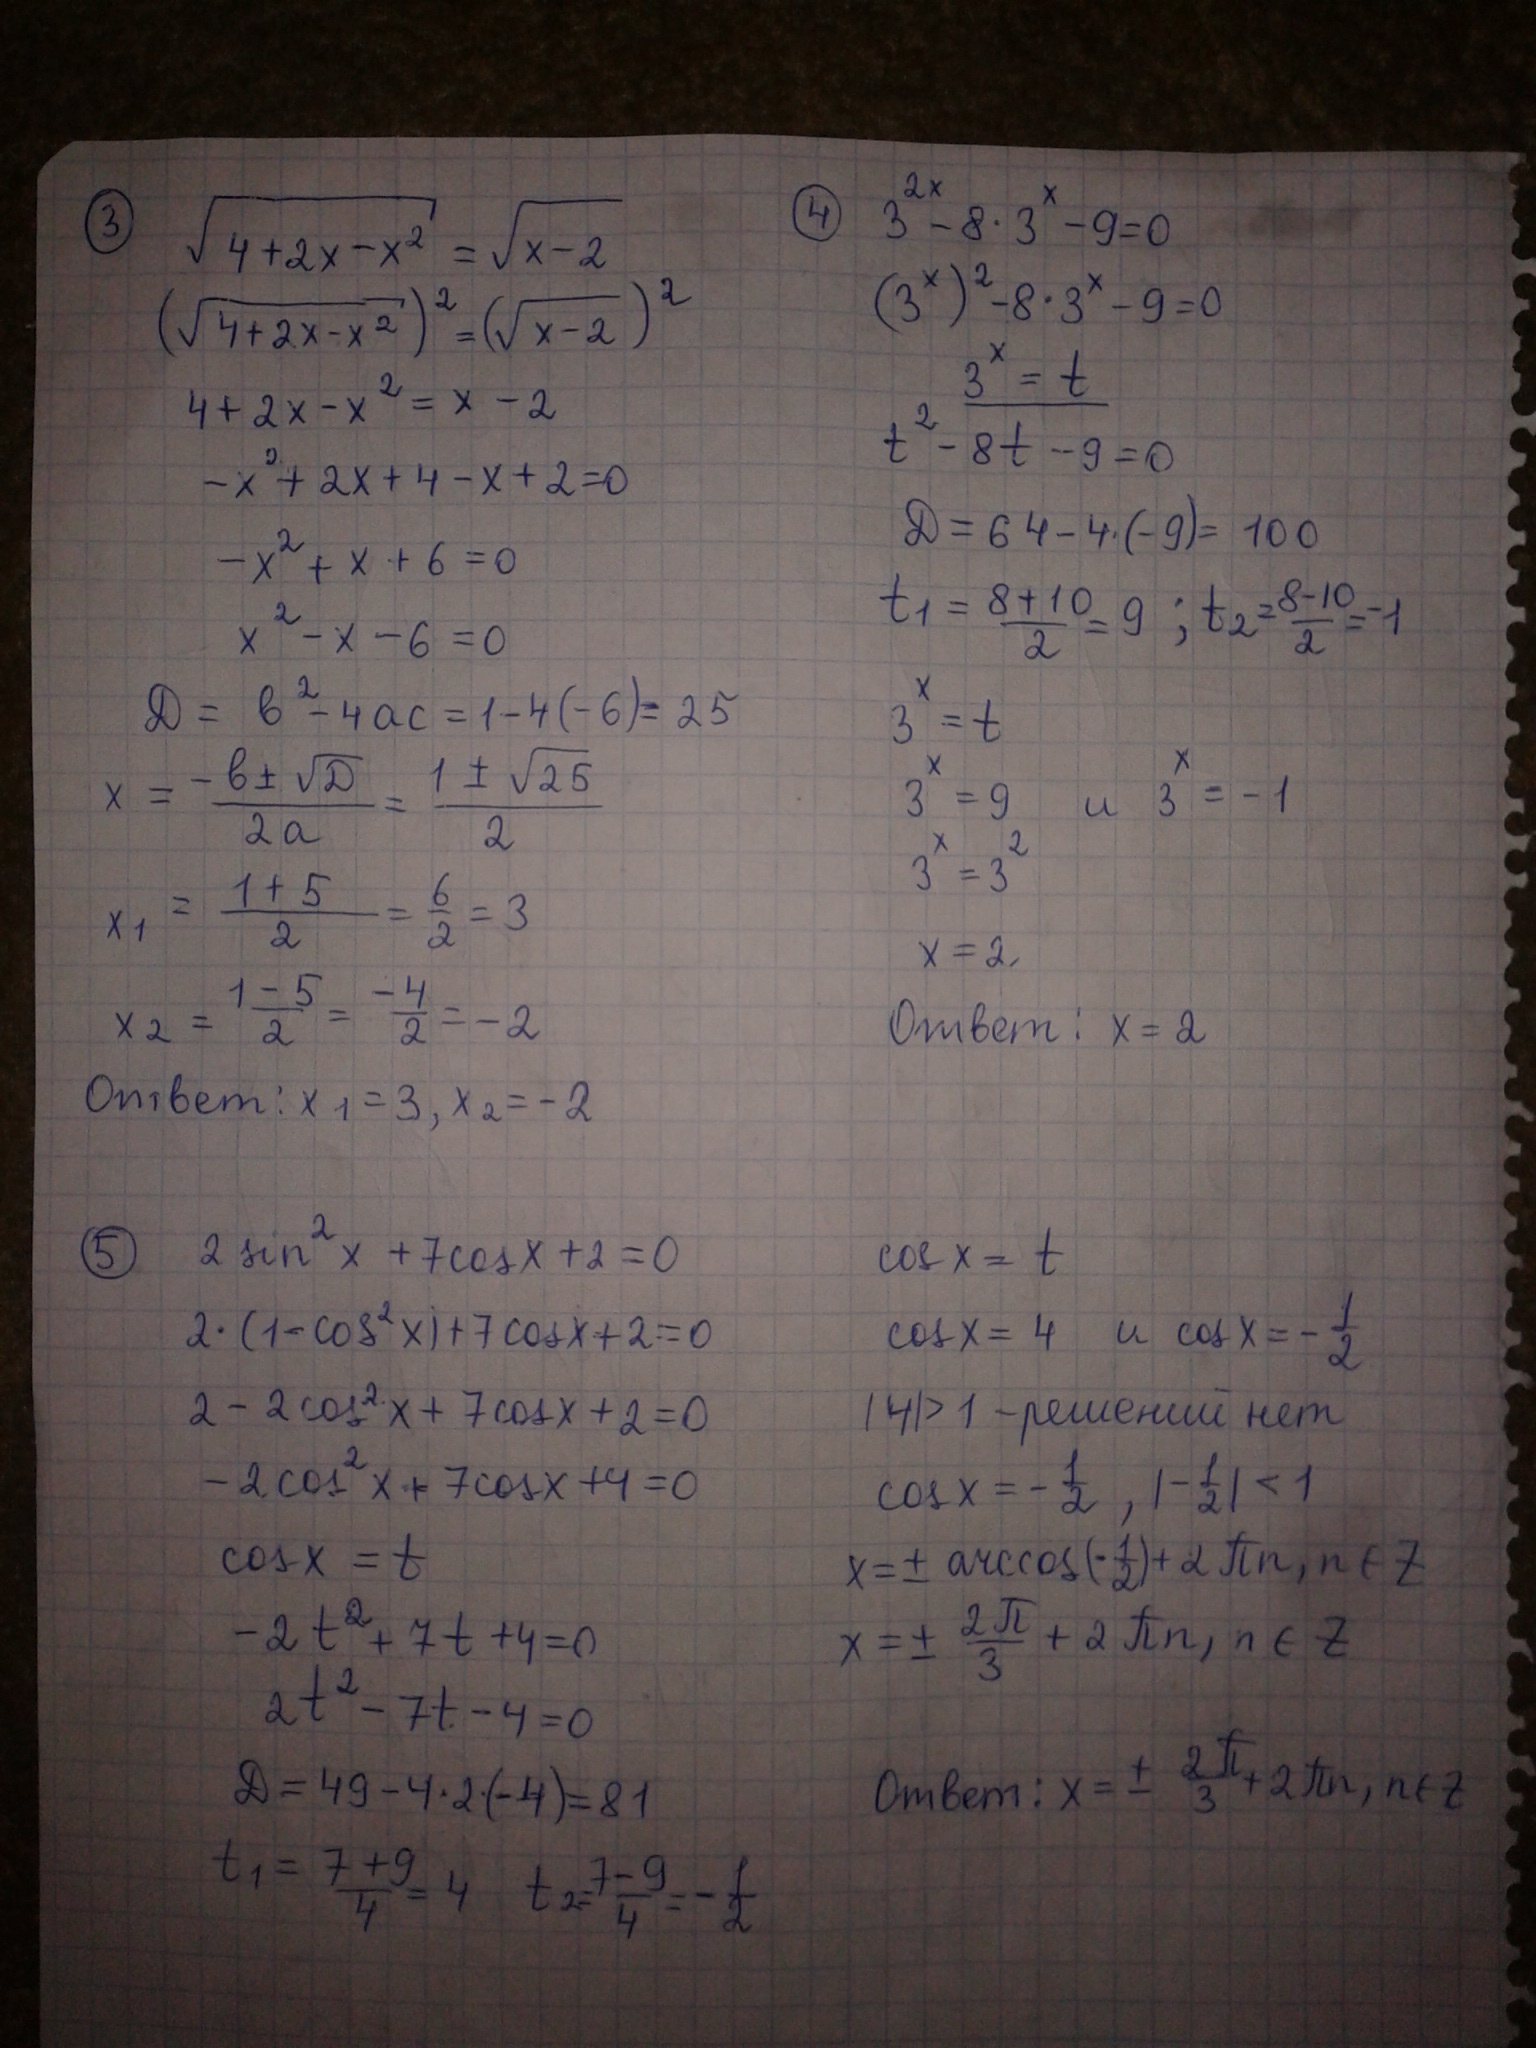 ③ √(4+2x-x²) = √(x-2)
(√(4+2x-x²))² = (√(x-2))²
4+2x-x² = x-2
-x²+2x+4-x+2=0
-x²+x+6=0
x²-x-6=0
D = b²-4ac = 1-4(-6) = 25
x = (-b±√D)/2a = (1±√25)/2
x₁ = (1+5)/2 = 6/2 = 3
x₂ = (1-5)/2 = -4/2 = -2
Ответ: x₁=3, x₂=-2
④ 3²ˣ-8·3ˣ-9=0
(3ˣ)²-8·3ˣ-9=0
3ˣ = t
t²-8t-9=0
D = 64-4·(-9) = 100
t₁ = (8+10)/2 = 9; t₂ = (8-10)/2 = -1
3ˣ = t
3ˣ = 9 и 3ˣ = -1
3ˣ = 3²
x = 2,
Ответ: x = 2
⑤ 2sin²x+7cosx+2=0
2·(1-cos²x)+7cosx+2=0
2-2cos²x+7cosx+2=0
-2cos²x+7cosx+4=0
cosx = t
-2t²+7t+4=0
2t²-7t-4=0
D = 49-4·2·(-4) = 81
t₁ = (7+9)/4 = 4 t₂ = (7-9)/4 = -1/2
cosx = t
cosx = 4 и cosx = -1/2
|4|>1 - решений нет
cosx = -1/2, |-1/2|<1
x = ± arccos(-1/2)+2πn, n∈Z
x = ± 2π/3 + 2πn, n∈Z
Ответ: x = ± 2π/3+2πn, n∈Z